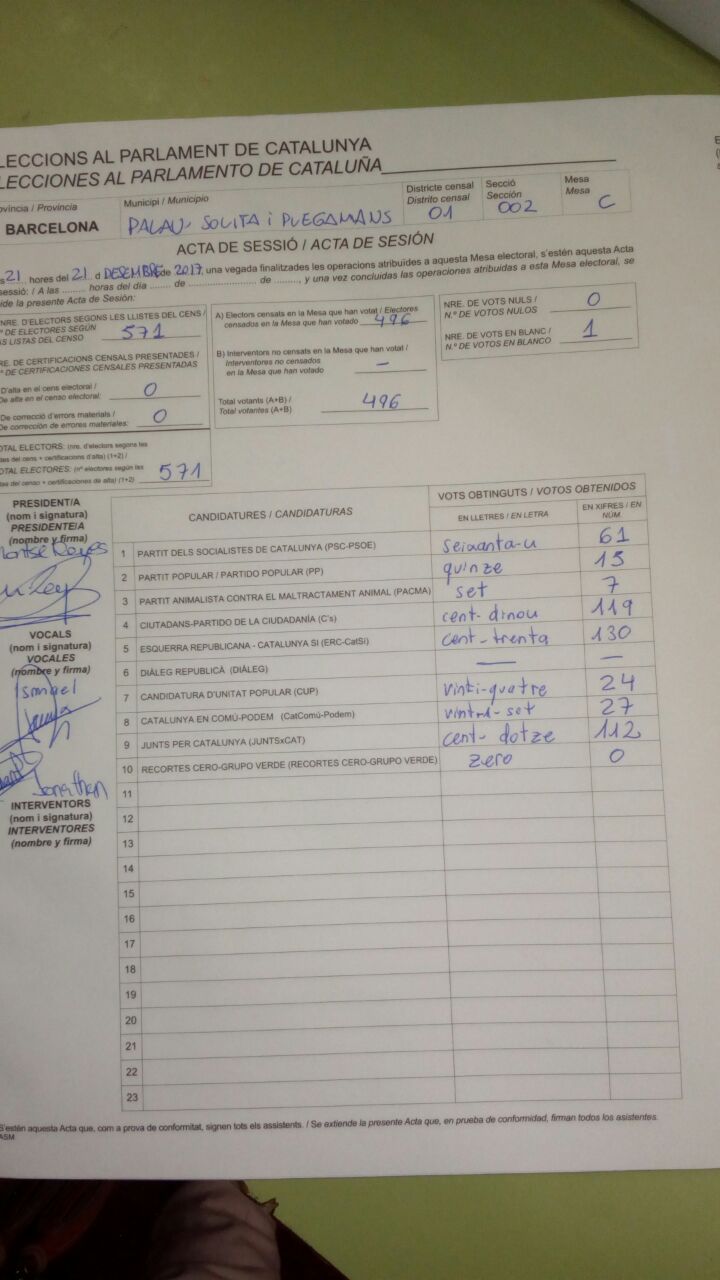 LECCIONS AL PARLAMENT DE CATALUNYA
LECCIONES AL PARLAMENTO DE CATALUÑA
ovíncia / Provincia
BARCELONA
Municipi / Municipio
PALAU-SOLITA i PLEGAMANS
Districte censal
Distrito censal
01
Secció
Sección
002
Mesa
Mesa
C
ACTA DE SESSIÓ / ACTA DE SESIÓN
s 21 hores del 21 d DESEMBRE de 2017, una vegada finalitzades les operacions atribuïdes a aquesta Mesa electoral, s'estén aquesta Acta
sessió: / A las ......... horas del día ....... de ..................... de ........, y una vez concluidas las operaciones atribuidas a esta Mesa electoral, se
ide la presente Acta de Sesión:
NRE. D'ELECTORS SEGONS LES LLISTES DEL CENS /
º DE ELECTORES SEGÚN
AS LISTAS DEL CENSO
571
RE. DE CERTIFICACIONS CENSALS PRESENTADES /
º DE CERTIFICACIONES CENSALES PRESENTADAS
D'alta en el cens electoral /
De alta en el censo electoral:
0
De correcció d'errors materials /
De corrección de errores materiales:
0
OTAL ELECTORS: (nre. d'electors segons les
tes del cens + certificacions d'alta) (1+2) /
OTAL ELECTORES: (nº electores según las
tas del censo + certificaciones de alta) (1+2)
571
A) Electors censats en la Mesa que han votat / Electores
censados en la Mesa que han votado
496
B) Interventors no censats en la Mesa que han votat /
Interventores no censados
en la Mesa que han votado
—
Total votants (A+B) /
Total votantes (A+B)
496
NRE. DE VOTS NULS /
N.º DE VOTOS NULOS
0
NRE. DE VOTS EN BLANC /
N.º DE VOTOS EN BLANCO
1
PRESIDENT/A
(nom i signatura)
PRESIDENTE/A
(nombre y firma)
Reyes
VOCALS
(nom i signatura)
VOCALES
(nombre y firma)
Ismael
Jonathan
INTERVENTORS
(nom i signatura)
INTERVENTORES
(nombre y firma)
CANDIDATURES / CANDIDATURAS
VOTS OBTINGUTS / VOTOS OBTENIDOS
EN LLETRES / EN LETRA
EN XIFRES / EN NÚM.
1 PARTIT DELS SOCIALISTES DE CATALUNYA (PSC-PSOE) seixanta-u 61
2 PARTIT POPULAR / PARTIDO POPULAR (PP) quinze 15
3 PARTIT ANIMALISTA CONTRA EL MALTRACTAMENT ANIMAL (PACMA) set 7
4 CIUTADANS-PARTIDO DE LA CIUDADANÍA (C's) cent-dinou 119
5 ESQUERRA REPUBLICANA - CATALUNYA SI (ERC-CatSí) cent-trenta 130
6 DIÀLEG REPUBLICÀ (DIÀLEG) — —
7 CANDIDATURA D'UNITAT POPULAR (CUP) vinti-quatre 24
8 CATALUNYA EN COMÚ-PODEM (CatComú-Podem) -set 27
9 JUNTS PER CATALUNYA (JUNTSxCAT) cent-dotze 112
10 RECORTES CERO-GRUPO VERDE (RECORTES CERO-GRUPO VERDE) zero 0
11
12
13
14
15
16
17
18
19
20
21
22
23
S'estén aquesta Acta que, com a prova de conformitat, signen tots els assistents. / Se extiende la presente Acta que, en prueba de conformidad, firman todos los asistentes.
ASM